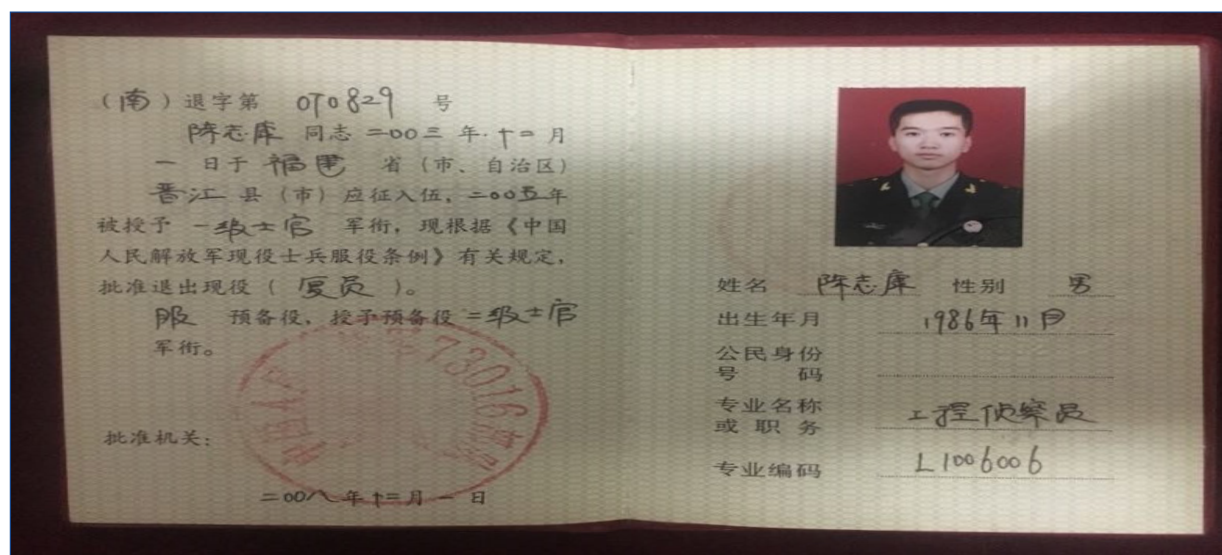 (南)退字第 070829 号
陈志库 同志 二00三 年 十二 月
一 日于 福建 省(市、自治区)
晋江 县(市)应征入伍,二00五年
被授予 一级士官 军衔,现根据《中国
人民解放军现役士兵服役条例》有关规定,
批准退出现役( 复员 )。
服 预备役,授予预备役 二级士官
军衔。
73016部队
批准机关:
二00八年十二月一日
姓名 陈志库 性别 男
出生年月 1986年11月
公民身份
号 码
专业名称 工程侦察员
或 职 务
专业编码 L1006006